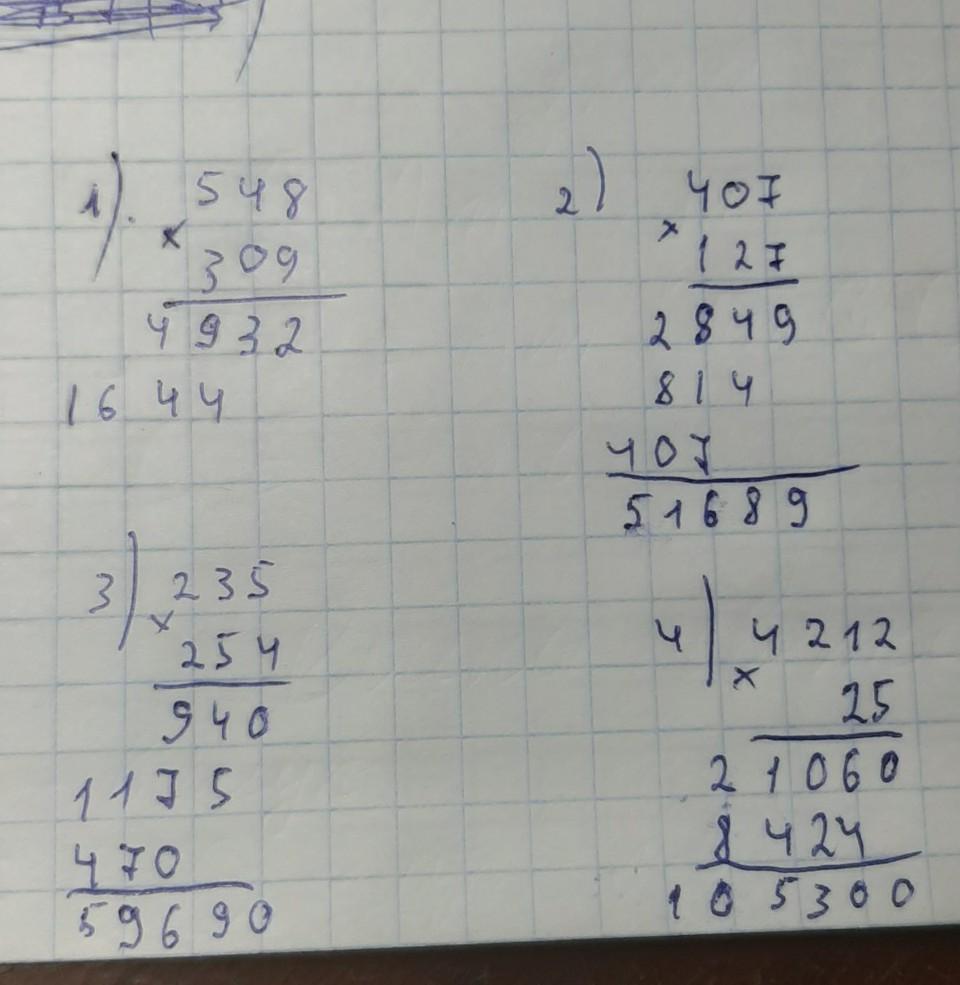 1). 548
×
309
4932
1644
2) 407
×
127
2849
814
407
51689
3) 235
×
254
940
1175
470
59690
4) 4212
×
25
21060
8424
105300